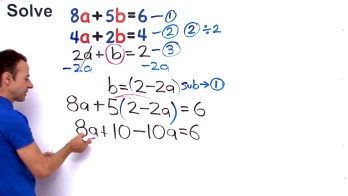 Solve
8a+5b=6 -①
4a+2b=4 -② ②÷2
2a+b=2-③
-2a -2a
b=(2-2a) sub→①
8a+5(2-2a)=6
8a+10-10a=6